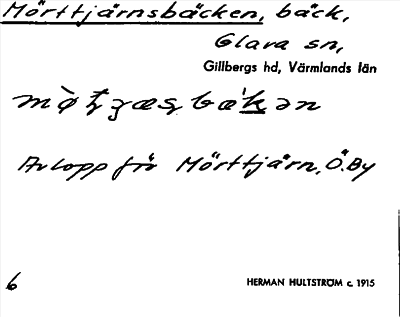 Mörttjärnsbäcken, bäck,
Glava sn,
Gillbergs hd, Värmlands län
Avlopp för Mörttjärn, Ö. By
6
HERMAN HULTSTRÖM c. 1915